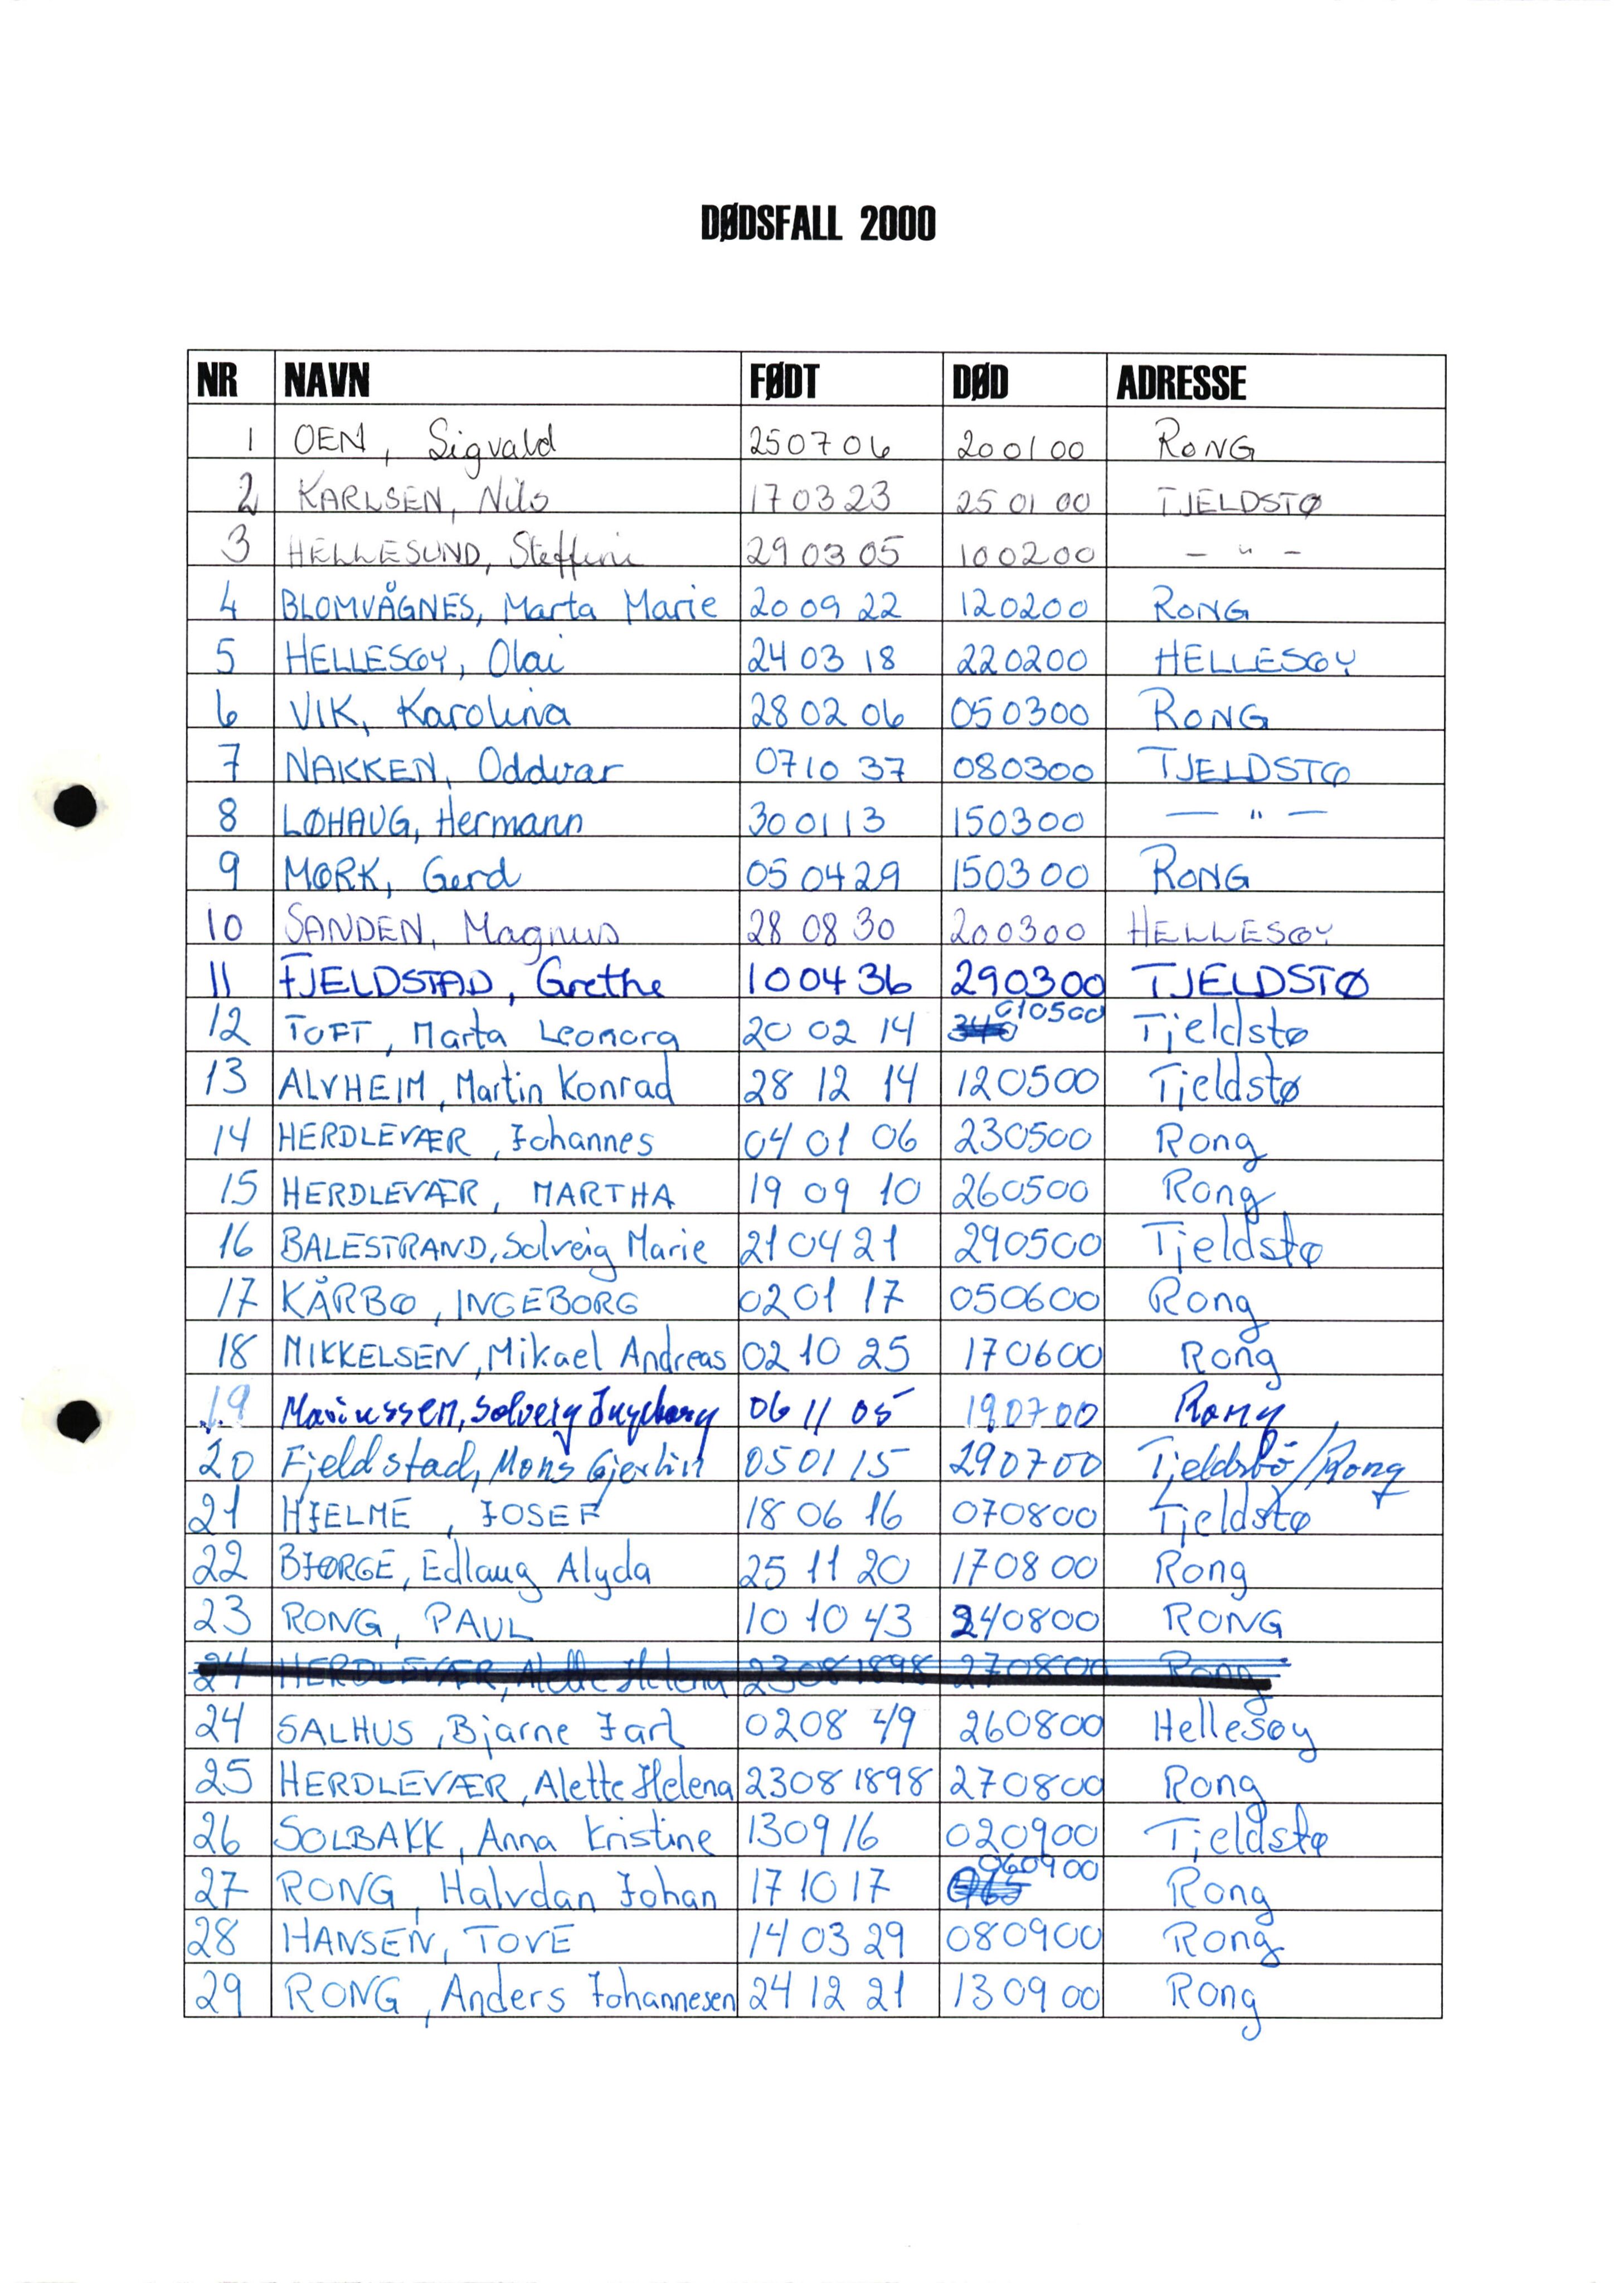 DØDSFALL 2000
NR NAVN FØDT DØD ADRESSE
1 OEN, Sigvald 250706 200100 RONG
2 KARLSEN, Nils 170323 250100 TJELDSTØ
3 HELLESUND, Steffini 290305 100200 — " —
4 BLOMVÅGNES, Marta Marie 200922 120200 RONG
5 HELLESØY, Olai 240318 220200 HELLESØY
6 VIK, Karolina 280206 050300 RONG
7 NAKKEN, Oddvar 071037 080300 TJELDSTØ
8 LØHAUG, Hermann 300113 150300 — " —
9 MØRK, Gerd 050429 150300 RONG
10 SANDEN, Magnus 280830 200300 HELLESØY
11 FJELDSTAD, Grethe 100436 290300 TJELDSTØ
12 TOFT, Marta Leonora 20 02 14 010500 Tjeldstø
13 ALVHEIM, Martin Konrad 28 12 14 120500 Tjeldstø
14 HERDLEVÆR, Johannes 04 01 06 230500 Rong
15 HERDLEVÆR, MARTHA 19 09 10 260500 Rong
16 BALESTRAND, Solveig Marie 210421 290500 Tjeldstø
17 KÅRBØ, INGEBORG 0201 17 050600 Rong
18 MIKKELSEN, Mikael Andreas 02 10 25 170600 Rong
19 Mariussen, Solveig Ingeborg 06 11 05 190700 Rong
20 Fjeldstad, Mons Gjertin 050115 290700 Tjeldstö/Rong
21 HJELME, JOSEF 18 06 16 070800 Tjeldstø
22 BJØRGE, Edlaug Alyda 25 11 20 170800 Rong
23 RONG, PAUL 10 10 43 240800 RONG
24 HERDLEVÆR, Alette Helena 23081898 270800 Rong
24 SALHUS, Bjarne Jarl 0208 49 260800 Hellesøy
25 HERDLEVÆR, Alette Helena 23081898 270800 Rong
26 SOLBAKK, Anna Kristine 130916 020900 Tjeldstø
27 RONG, Halvdan Johan 17 10 17 060900 Rong
28 HANSEN, TOVE 14 03 29 080900 Rong
29 RONG, Anders Johannesen 24 12 21 130900 Rong